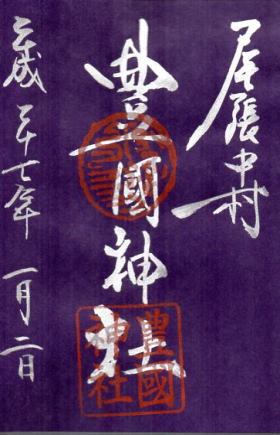 尾張中村
豊國神社
平成二十七年 一月二日
豊國
神社